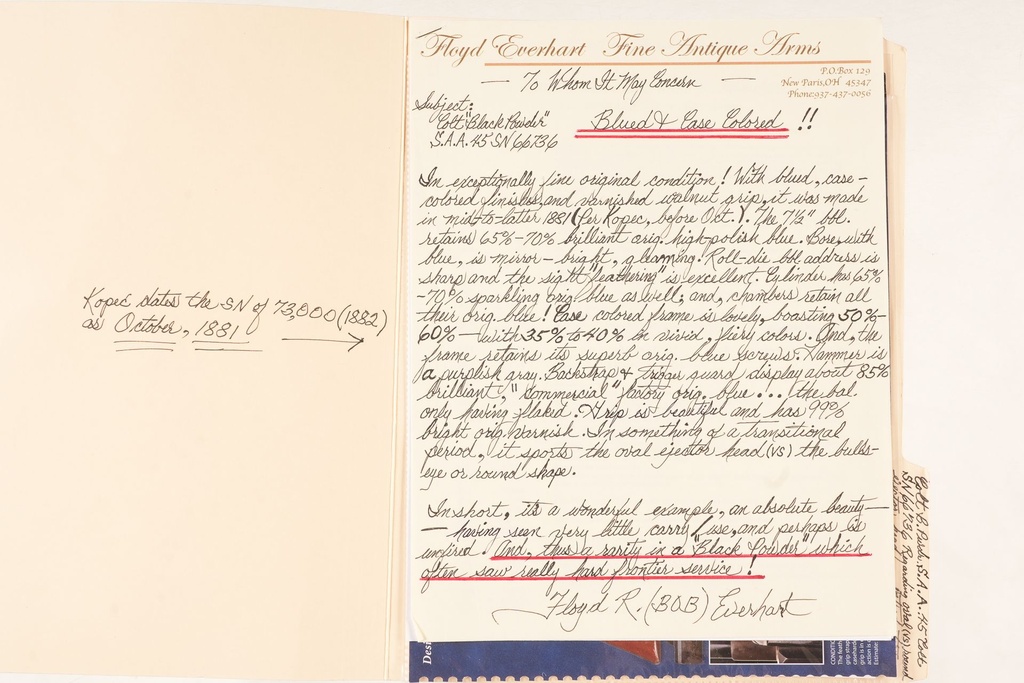 Kopec dates the SN of 73,000 (1882)
as October, 1881 →
Floyd Everhart Fine Antique Arms
P.O.Box 129
New Paris,OH 45347
Phone:937-437-0056
— To Whom It May Concern —
Subject:
Colt "Black Powder"
S.A.A. 45 SN 66736
Blued & Case Colored !!
In exceptionally fine original condition! With blued, case-
colored finishes, and varnished walnut grip, it was made
in mid-to-latter 1881 (Per Kopec, before Oct.). The 7½" bbl.
retains 65%-70% brilliant orig. high-polish blue. Bore, with
blue, is mirror-bright, gleaming. Roll-die bbl. address is
sharp and the sight "feathering" is excellent. Cylinder has 65%
-70% sparkling orig. blue as well, and, chambers retain all
their orig. blue! Case colored frame is lovely, boasting 50%-
60% — with 35% to 40% in vivid, fiery colors. And, the
frame retains its superb orig. blue screws. Hammer is
a purplish gray. Backstrap & trigger guard display about 85%
brilliant, "commercial" factory orig. blue... the bal.
only having flaked. Grip is beautiful and has 99%
bright orig. varnish. In something of a transitional
period, it sports the oval ejector head (vs) the bulls-
eye or round shape.
In short, it's a wonderful example, an absolute beauty—
— having seen very little carry/use, and perhaps is
unfired. And, thus a rarity in a "Black Powder" which
often saw really hard frontier service!
Floyd R. (BOB) Everhart
Colt B. Powd. S.A.A. 45 Colt
SN 66736 Regarding oval (vs) round
Desi
CONDITIO
The feath
grip strap
casehard
grip is in
action is
Estimate